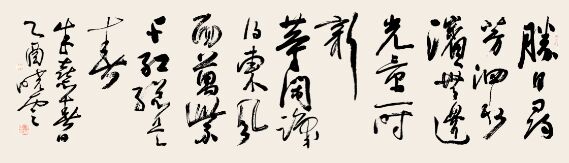 勝日尋
芳泗水
濱無邊
光景一時
新
等閑識
得東風
面萬紫
千紅總是
春
朱熹春日
乙酉曉雲